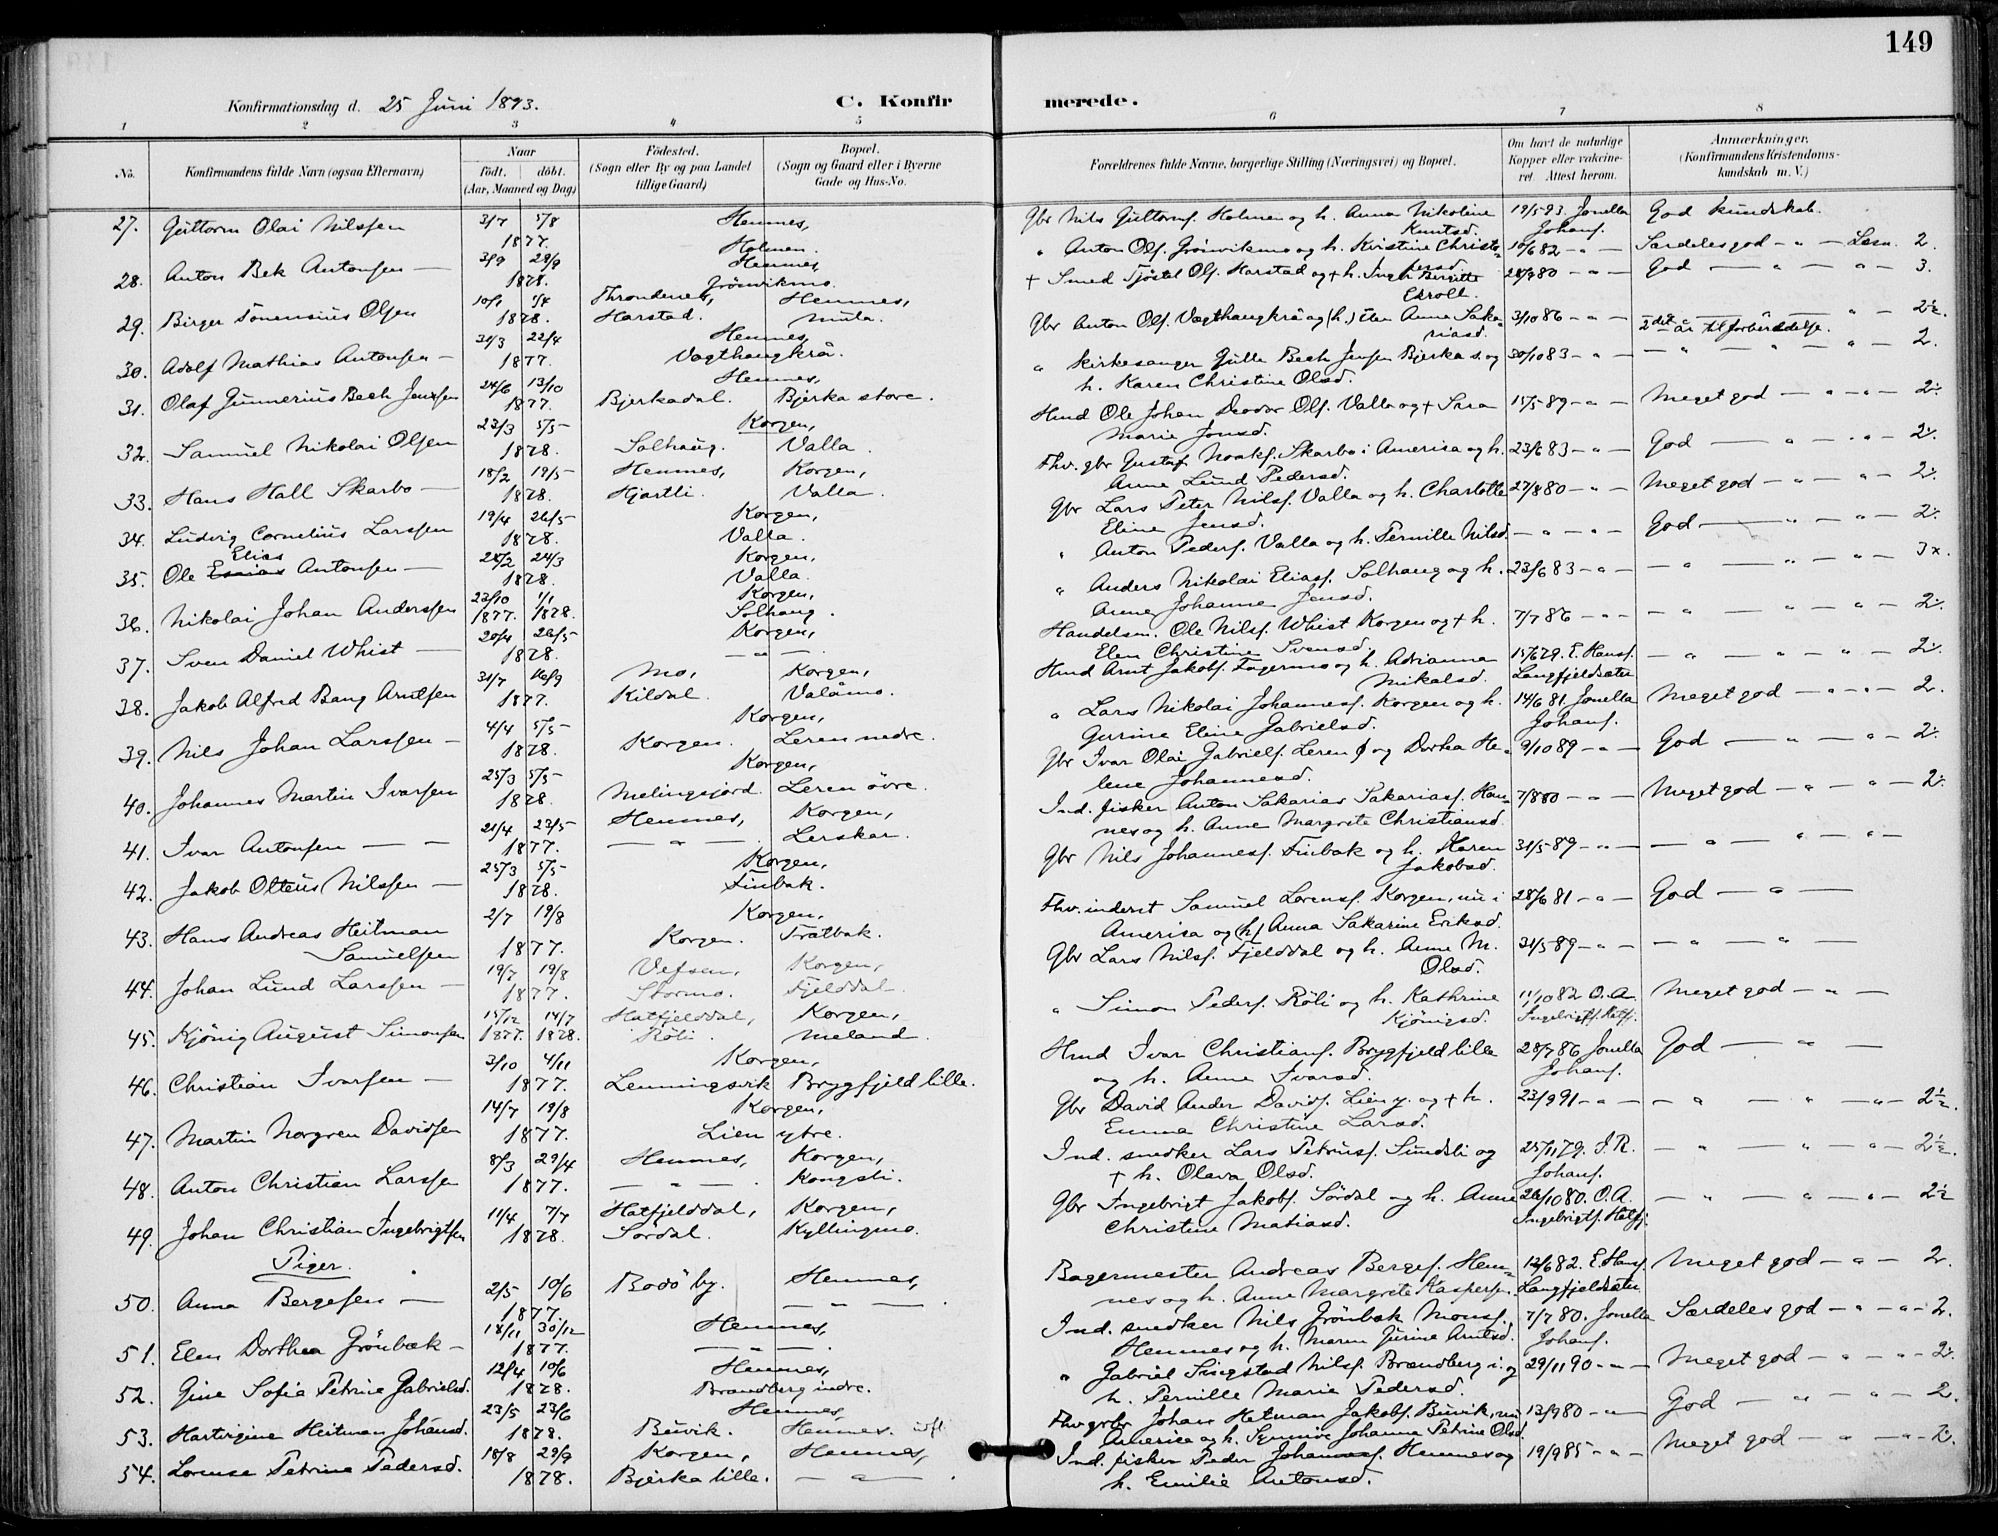 149
Konfirmationsdag d. 25 Juni 1893.
C. Konfirmerede.
1 2 3 4 5 6 7 8
No. Konfirmandens fulde Navn (ogsaa Efternavn) Naar födt. döbt. (Aar, Maaned og Dag) Födested. (Sogn eller By og paa Landet tillige Gaard) Bopæl. (Sogn og Gaard eller i Byerne Gade og Hus-No.
Forældrenes fulde Navne, borgerlige Stilling (Næringsvei) og Bopæl. Om havt de naturlige Kopper eller vakcineret. Attest herom. Anmærkninger. (Konfirmandens Kristendomskundskab m. V.)
27. Guttorm Olai Nilssen 3/7 5/8 1877. Hemnes, Holmen. Gbr Nils Guttorms. Holmen og h. Anna Nikoline Knutsd. 19/5 93 Jonella Johans. God kundskab.
28. Anton Bek Antonsen — 3/9 29/9 1878. Hemnes, Grönvikmo. " Anton Ols. Grönvikmo og h. Kristine Christensd. 10/6 82 - " - Særdeles god - " - Læsn. 2.
29. Birger Tönensius Olsen 10/1 1/4 1878. Throndenes, Harstad. Hemnes, Mula. + Smed Tjöstel Ols. Harstad og + h. Ingb. Birgitte Ekroll. 28/9 80 - " - God — " — " — 3.
30. Adolf Mathias Antonsen — 31/3 22/4 1877. Hemnes, Vagthaugkrå. Gbr Anton Ols. Vagthaugkrå og (h.) Elen Anna Sakariasd. 3/10 86 - " - 2det år til forberedelse. " — 2½.
31. Olaf Gunnerius Bech Jenssen 24/6 13/10 1877. Hemnes, Bjerkadal. Bjerka store. " Kirkesanger Gulle Bech Jensen Bjerka s. og h. Karen Christine Olsd. 30/10 83 - " - — " — " — " — 2.
32. Samuel Nikolai Olsen 23/3 5/5 1878. Korgen, Solhaug. Valla. Hmd Ole Johan Deodor Ols. Valla og + Sara Marie Jonsd. 15/5 89 - " - Meget god — " — " — 2.
33. Hans Hall Skarbo — 18/2 19/5 1878. Hemnes, Hjartli. Korgen, Valla. Fhv. gbr Gustaf Noaks. Skarbo i Amerika og h. Anne Lund Pedersd. 23/6 83 - " - God — " — " — 2.
34. Ludvig Cornelius Larssen 19/4 26/5 1878. Korgen, Valla. Gbr Lars Peter Nilss. Valla og h. Charlotte Eline Jensd. 27/8 80 - " - Meget god — " — " — 2.
35. Ole Elias Antonsen — 28/2 24/3 1878. Korgen, Valla. " Anton Peders. Valla og h. Pernille Nilsd. — " — " — God — " — " — 2.
36. Nikolai Johan Anderssen 23/10 1877. 1/1 1878. Korgen, Solhaug. " Anders Nikolai Elias. Solhaug og h. Anne Johanne Jensd. 23/6 83 - " - — " — " — " — 3 x.
37. Sven Daniel Whist — 20/4 26/5 1878. Korgen, — " — Handelsm. Ole Nilss. Whist Korgen og + h. Elen Christine Svensd. 7/7 86 - " - — " — " — " — 2.
38. Jakob Alfred Bang Arntsen 31/7 16/9 1877. Mo, Kildal. Korgen, Valåmo. Hmd Arnt Jakobs. Fagermo og h. Adrianna Mikalsd. 15/6 79. E. Hans. Langfjeldsæter — " — " — " — 2.
39. Nils Johan Larssen — 4/4 5/5 1878. Korgen, Korgen. Leren nedre. " Lars Nikolai Johannes. Korgen og h. Gurine Eline Gabrielsd. 14/6 81. Jonella Johans. Meget god — " — " — 2.
40. Johannes Martin Ivarsen 25/3 5/5 1878. Korgen, Melingsjord. Leren övre. Gbr Ivar Olai Gabriels. Leren ö og Dorthea Helene Johannesd. 9/10 89 - " - God — " — " — 2.
41. Ivar Antonsen — — 21/4 23/5 1877. Hemnes, — " — Korgen, Lerskar. Ind. fisker Anton Sakarias Sakarias. Hemnes og h. Anne Margrete Christiansd. 7/8 80 - " - Meget god — " — " — 2.
42. Jakob Olteus Nilssen — 25/3 5/5 1878. Korgen, Finbak. Gbr Nils Johannes. Finbak og h. Karen Jakobsd. 31/5 89 - " - — " — " — " —
43. Hans Andreas Heitman Samuelsen 2/7 19/8 1877. Korgen, Korgen. Fratbak. Fhv. inderst Samuel Lorens. Korgen, nu i Amerika og (h) Anna Sakarine Eriksd. 28/6 81 - " - God — " —
44. Johan Lund Larssen — 19/7 19/8 1877. Vefsen, Stormo. Korgen, Fjelddal. Gbr Lars Nilss. Fjelddal og h. Anne M. Olsd. 31/5 89 - " - — " — " —
45. Kjönig August Simonsen 15/12 1877. 14/7 1878. Hatfjelddal, Röli. Korgen, Meland. " Simon Peders. Röli og h. Kathrine Kjönigsd. 11/10 82 O. A. Ingebrigts. Hatfj. Meget god — " —
46. Christian Ivarsen — 3/10 4/11 1877. Korgen, Lenningsvik Brygfjeld lille. Hmd Ivar Christians. Brygfjeld lille og h. Anne Ivarsd. 28/7 86 Jonella Johans. God — " —
47. Martin Norgren Davidsen 14/7 19/8 1877. Korgen, Lien ytre. Gbr David Ander Davids. Lien y. og + h. Emma Christine Larsd. 23/9 91 - " - — " — " — " — 2½.
48. Anton Christian Larssen 8/3 29/4 1877. Hemnes, — " — Korgen, Kongsli. Ind. snedker Lars Petrus. Sundsli og + h. Olava Olsd. 25/11 79. J. R. Johans. — " — " — " — 2½.
49. Johan Christian Ingebrigtsen 11/4 7/7 1878. Hatfjelddal, Sordal. Korgen, Kyllingmo. Gbr Ingebrigt Jakobs. Sördal og h. Anne Christine Matiasd. 26/10 80. O. A. Ingebrigts. Hatfj. — " — " — " — 2½
Piger.
50. Anna Bergesen — 2/5 10/6 1877. Bodö by. Hemnes, — " — Bagermester Andreas Berges. Hemnes og h. Anne Margrete Kaspersen. 12/6 82. E. Hans. Langfjeldsæter Meget god — " — 2.
51. Elen Dorthea Grönbæk — 18/11 30/12 1877. Hemnes, — " — Ind. snedker Nils Grönbæk Mons. Hemnes og h. Maren Jurine Arntsd. 7/7 80. Jonella Johans. Særdeles god — " — " — 2.
52. Gine Sofie Petrine Gabrielsd. 12/4 10/6 1878. Hemnes, Brandberg indre. " Gabriel Singstad Nilss. Brandberg i. og h. Pernille Marie Pedersd. 29/11 90 - " - Meget god — " — " — 2.
53. Hartvigine Heitman Johansd. 23/5 23/6 1878. Hemnes, Buvik. Hemnes. Fhv gbr Johan Hetman Jakobs. Buvik, nu Amerika og h. Synnöve Johanna Petrine Olsd. 13/9 80 - " - God — " — " — 2.
54. Lorense Petrine Pedersd. 18/8 29/9 1878. Korgen, Bjerka lille. Hemnes, — " — Ind. fisker Peder Johannes. Hemnes og h. Emilie Antonsd. 19/9 85 - " - Meget god — " — " — 2.